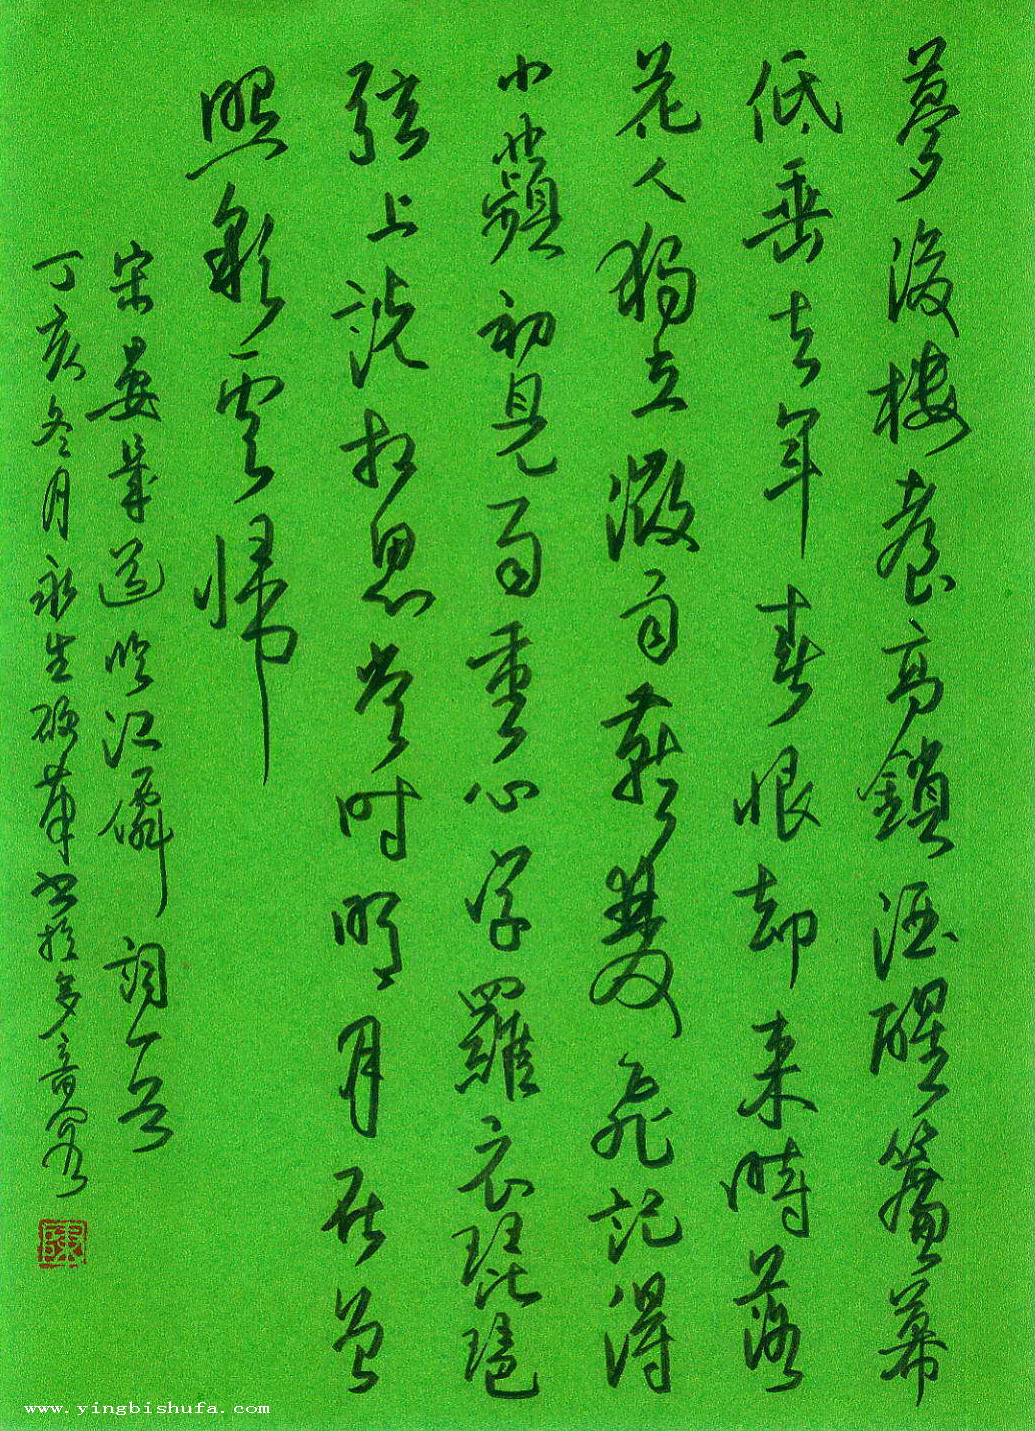 夢後樓臺高鎖酒醒簾幕
低垂去年春恨却來時落
花人獨立微雨燕雙飛記得
小蘋初見兩重心字羅衣琵琶
弦上說相思當時明月在曾
照彩雲歸
宋晏幾道臨江僊詞一首
丁亥冬月永生硬筆書於
www.yingbishufa.com